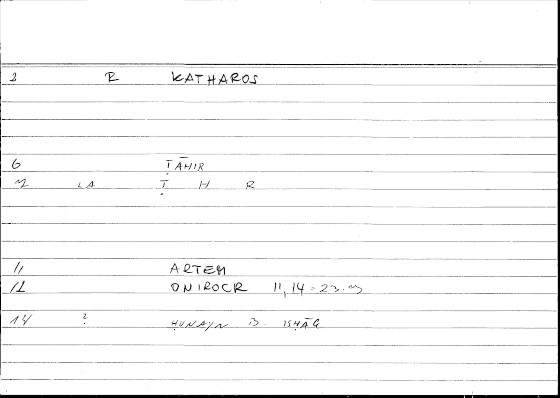 3 R KATHAROS
6 ṬĀHIR
7 LA Ṭ H R
11 ARTEM
12 ONIROCR 11,14 = 23.
14 ? ḤUNAYN B. ISḤĀQ